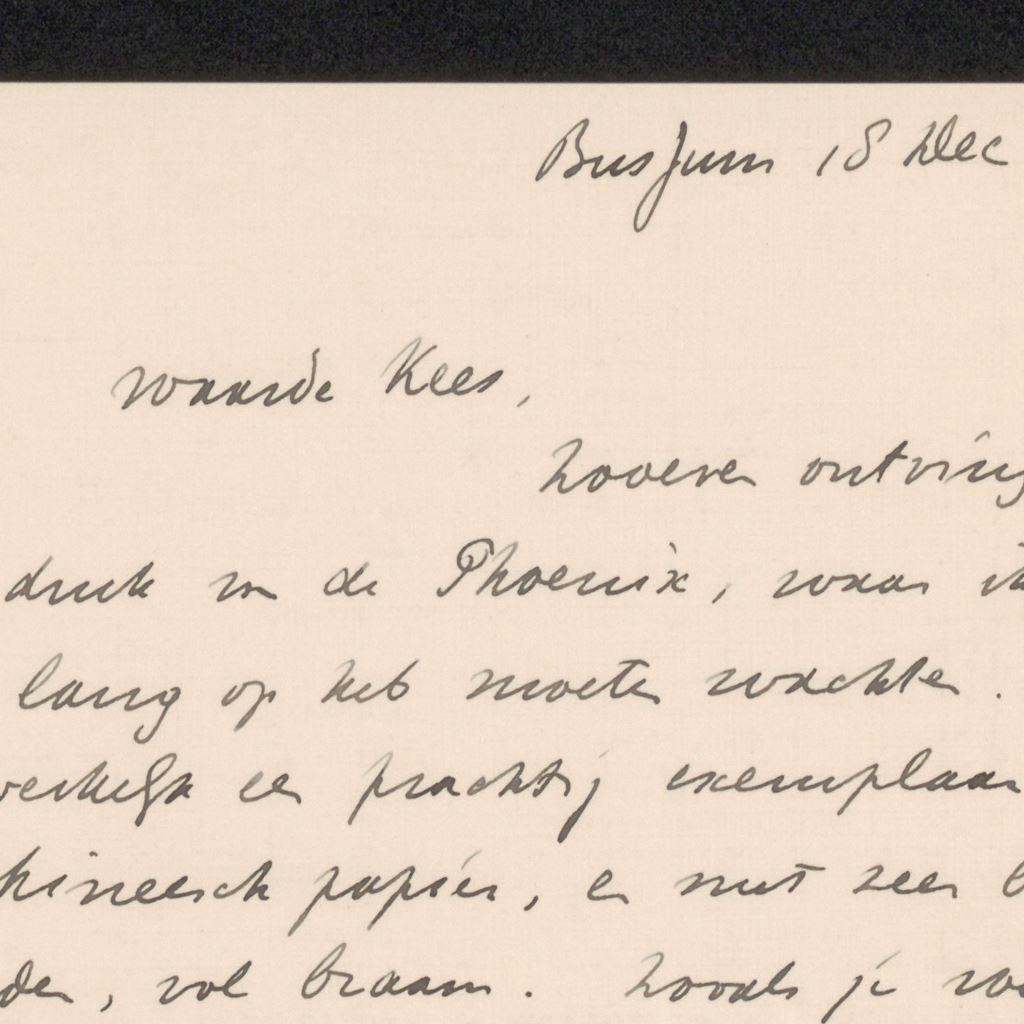 Bussum 18 Dec
Waarde Kees,
Zooeven ontving
druk van de Phoenix, waar ik
lang op heb moeten wachten.
werkelijk een prachtig exemplaar
hineesch papier, en met zeer
den, vol braam. Zooals je